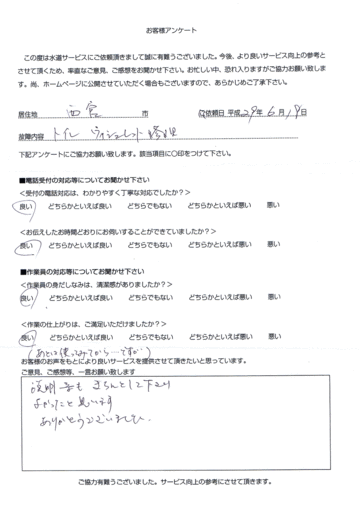 お客様アンケート
この度は水道サービスにご依頼頂きまして誠に有難うございました。今後、より良いサービス向上の参考と
させて頂くため、率直なご意見、ご感想をお聞かせ下さい。お忙しい中、恐れ入りますがご協力お願い致しま
す。尚、ホームページに公開させていただく場合もございますので、あらかじめご了承下さい。
居住地 西宮 市 ご依頼日 平成 29年 6月 18日
故障内容 トイレ ウォシュレット 修理
下記アンケートにご協力お願い致します。該当項目に○印をつけて下さい。
■電話受付の対応等についてお聞かせ下さい
<受付の電話対応は、わかりやすく丁寧な対応でしたか?>
良い どちらかといえば良い どちらでもない どちらかといえば悪い 悪い
<お伝えしたお時間どおりにお伺いすることができていましたか?>
良い どちらかといえば良い どちらでもない どちらかといえば悪い 悪い
■作業員の対応等についてお聞かせ下さい
<作業員の身だしなみは、清潔感がありましたか?>
良い どちらかといえば良い どちらでもない どちらかといえば悪い 悪い
<作業の仕上がりは、ご満足いただけましたか?>
良い どちらかといえば良い どちらでもない どちらかといえば悪い 悪い
(あとは使ってみてから…ですが)
お客様のお声をもとにより良いサービスを提供させて頂きたいと思っています。
ご意見、ご感想等、一言お願い致します
説明等も きちんとして下さり
よかったと思います
ありがとうございました。
ご協力有難うございました。サービス向上の参考にさせて頂きます。